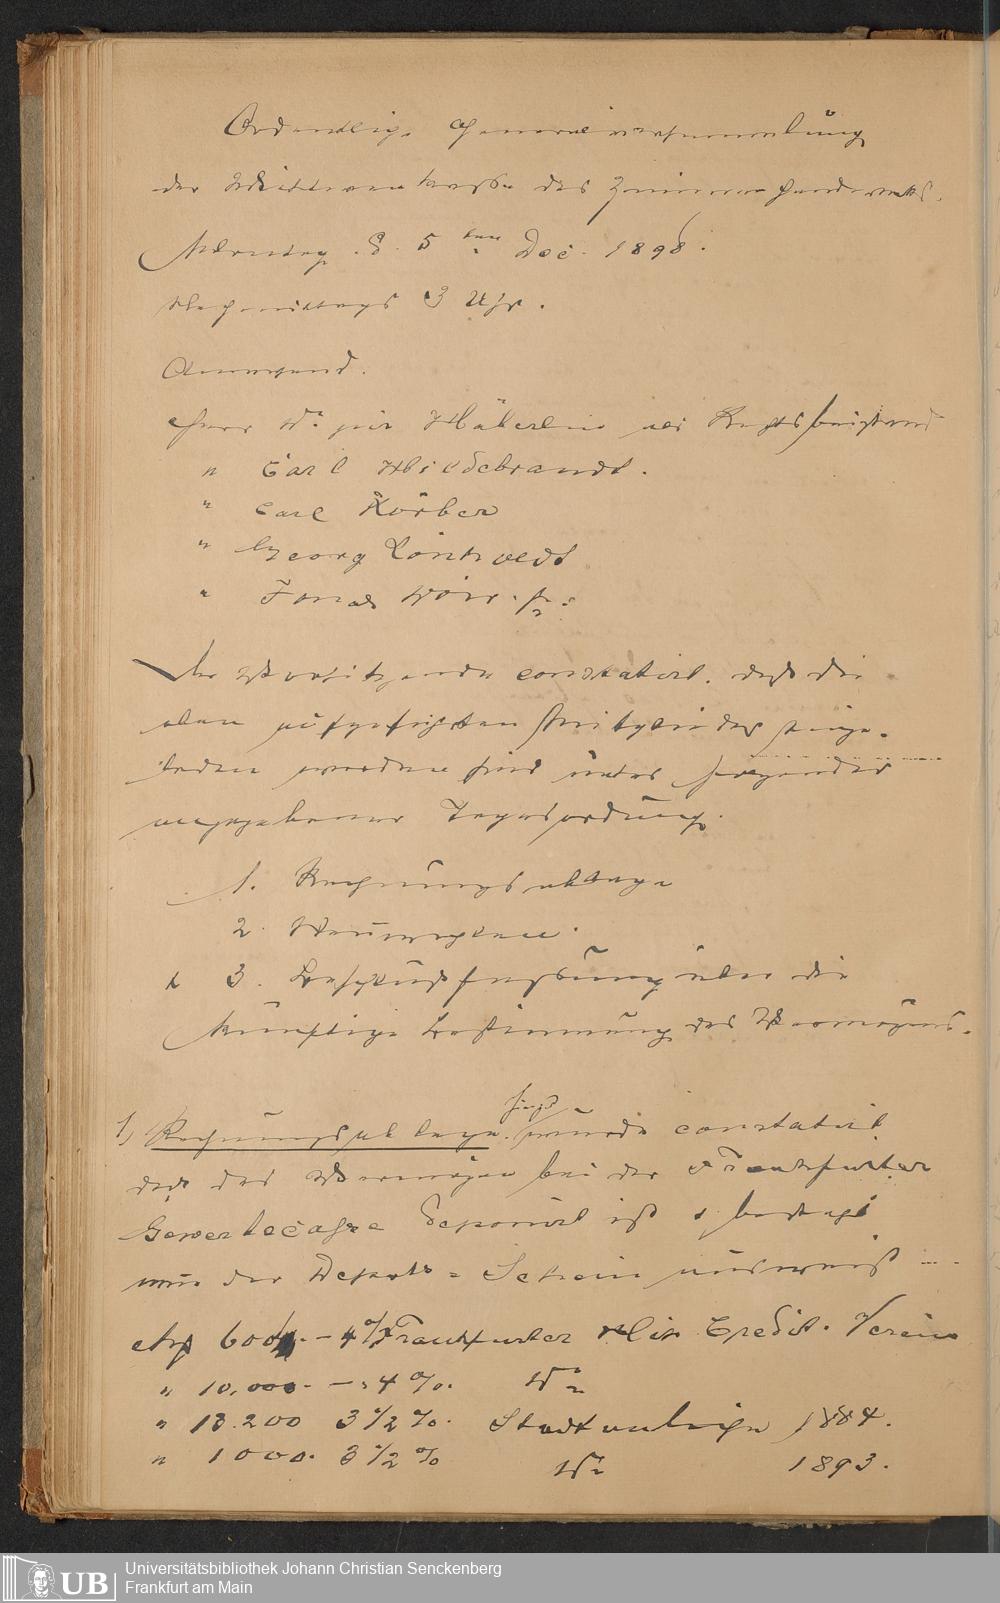 Ordentliche Generalversammlung
der Wittwenkasse des Zimmerhandwerks.
Montag d. 5ten Dec. 1898.
Nachmittags 3 Uhr.
Anwesend.
Herr Dr jur Häberlin als Rechtsbeistand
" Carl Hildebrandt.
" Carl Körber
" Georg
" Jonas
Der Vorsitzende constatirt. daß die
oben aufgeführten Mitglieder einge-
laden worden sind unter folgender
angegebener Tagesordnung.
1. Rechnungsablage
2. Neuwahlen.
3. Beschlußfassung über die
künftige Bestimmung des Vermögens.
1) Rechnungsablage. wurde constatirt
daß das Vermögen bei der Frankfurter
Gewerbecasse deponirt ist & besteht
der Depots-Schein ausweist
4% Frankfurter Credit. Verein
" 10,000. - 4%. Do
" 13.200 3 1/2 %. Stadtanleihe 1884.
" 1000. 3 1/2 % Do 1893.
Universitätsbibliothek Johann Christian Senckenberg
Frankfurt am Main
UB